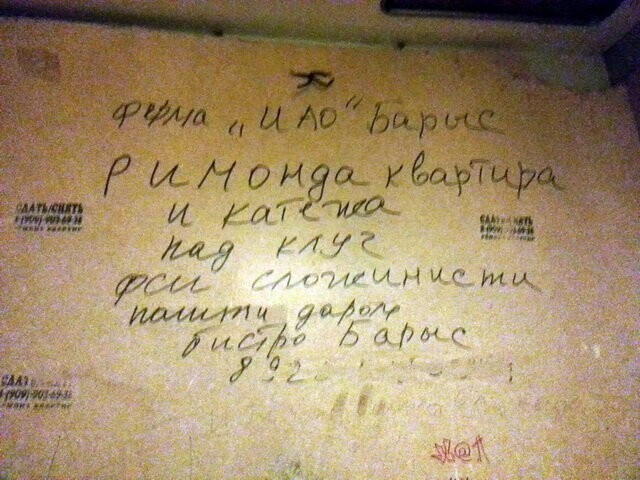 ферма „ИАО" Барыс
римонда квартира
и катежа
пад клуч
фси сложинисти
пашти даром
бистро Барыс
892
СДАТЬ/СНЯТЬ
8 (909)-903-69-36
СДАТЬ/СНЯТЬ
СДАТ
(909)-903-69-36